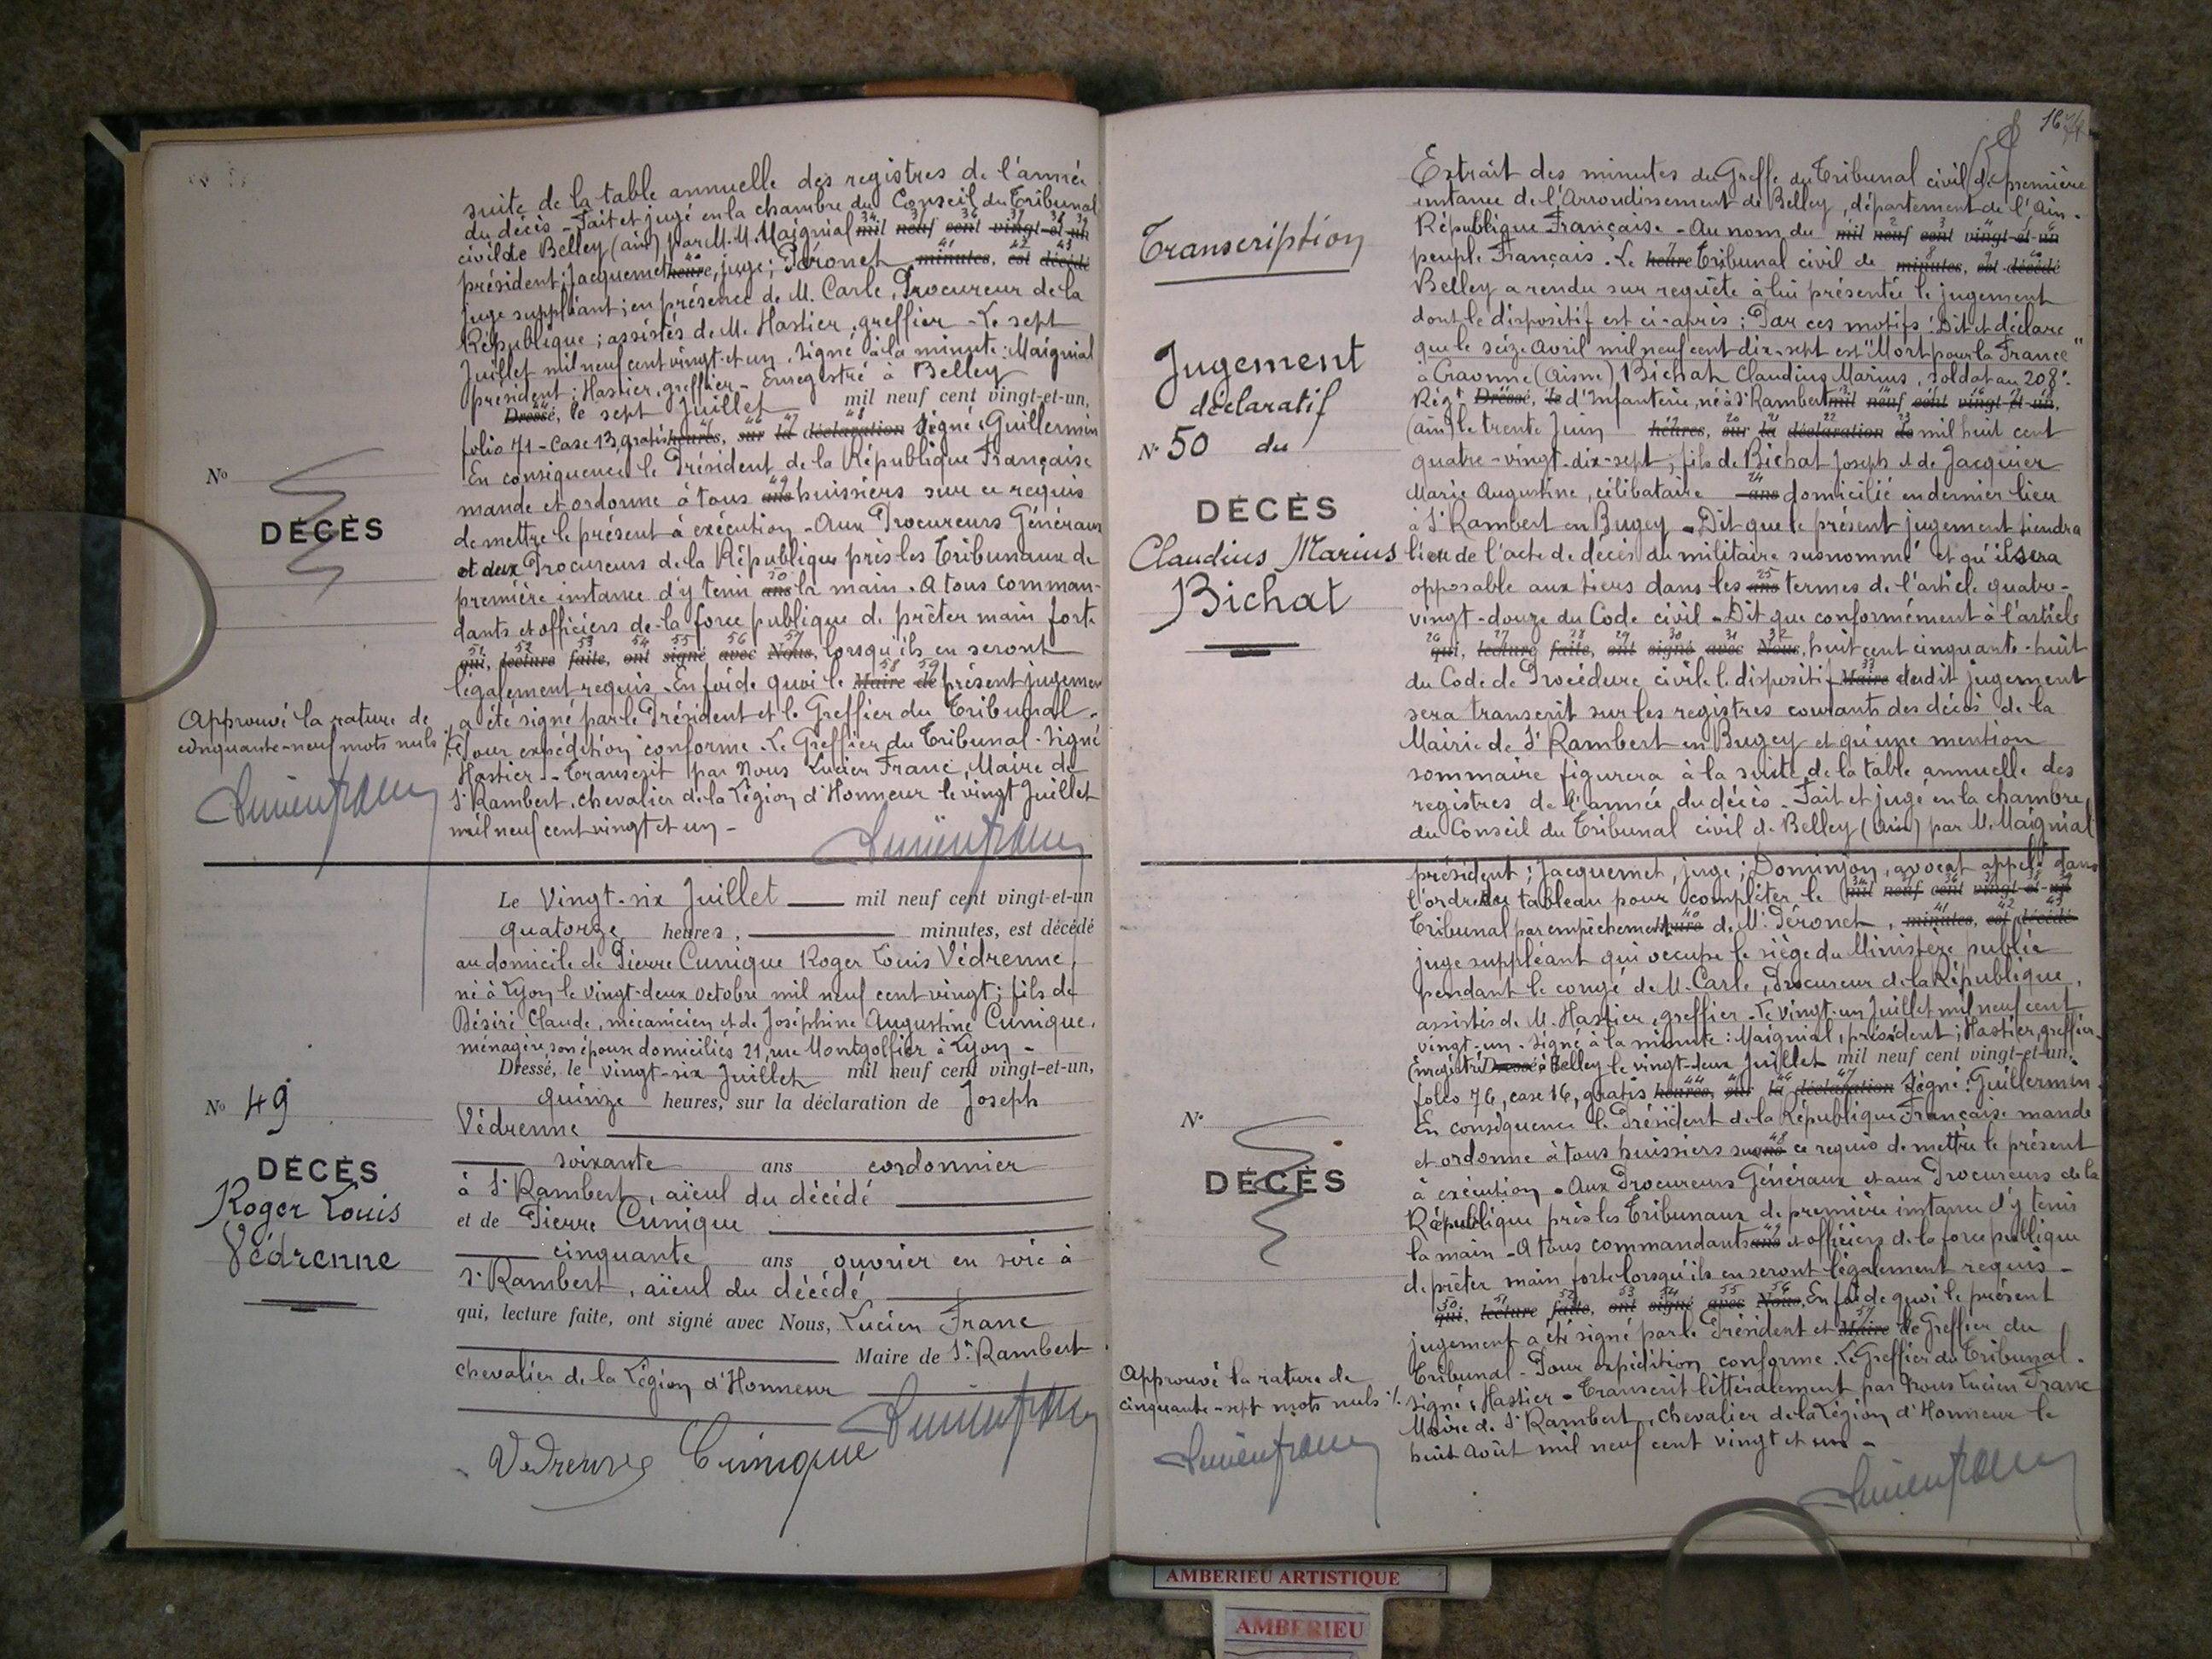 suite de la table annuelle des registres de l'année
du décès - Fait et jugé en la chambre du Conseil du Tribunal
civil de Belley (ain) par M. M. Maignial mil neuf cent vingt-et-un
président; Jacquemet heure, juge; Péronet minutes, est décédé
juge suppléant; en présence de M. Carle, Procureur de la
République; assistés de M. Hastier, greffier - Le sept
Juillet mil neuf cent vingt-et un. Signé à la minute: Maignial
président; Hastier, greffier - Enregistré à Belley
Dressé, le sept Juillet mil neuf cent vingt-et-un,
folio 71 - Case 13, gratis heures, sur la déclaration Signé: Guillermin
En conséquence le Président de la République Française
mande et ordonne à tous ans huissiers sur ce requis
de mettre le présent à exécution - Aux Procureurs Généraux
et aux Procureurs de la République près les Tribunaux de
première instance d'y tenir ans la main. A tous comman-
dants et officiers de la force publique de prêter main forte
qui, lecture faite, ont signé avec Nous, lorsqu'ils en seront
légalement requis. En foi de quoi le Maire de présent jugement
a été signé par le Président et le Greffier du Tribunal.
Pour expédition conforme. Le Greffier du Tribunal - Signé
Hastier - Transcrit par Nous Lucien Franc, Maire de
St Rambert, chevalier de la Légion d'Honneur le vingt Juillet
mil neuf cent vingt et un -
No
DÉCÈS
Approuvé la rature de
cinquante-neuf mots nuls
Lucien Franc
Lucien Franc
No 49
DÉCÈS
Roger Louis
Védrenne
Le Vingt-six Juillet mil neuf cent vingt-et-un
quatorze heures, minutes, est décédé
au domicile de Pierre Cunique Roger Louis Védrenne,
né à Lyon le vingt-deux octobre mil neuf cent vingt; fils de
Désiré Claude, mécanicien et de Joséphine Augustine Cunique,
ménagère, son épouse domiciliés 21, rue Montgolfier à Lyon -
Dressé, le vingt-six Juillet mil neuf cent vingt-et-un,
quinze heures, sur la déclaration de Joseph
Védrenne
soixante ans cordonnier
à St Rambert, aïeul du décédé
et de Pierre Cunique
cinquante ans ouvrier en soie à
St Rambert, aïeul du décédé
qui, lecture faite, ont signé avec Nous, Lucien Franc
Maire de St Rambert
chevalier de la Légion d'Honneur
Lucien Franc
Vedrenne Cunique
167
Transcription
Jugement
déclaratif
No 50 du
DÉCÈS
Claudius Marius
Bichat
Extrait des minutes du Greffe du Tribunal civil de première
instance de l'Arrondissement de Belley, département de l'Ain.
République Française. - Au nom du mil neuf cent vingt-et-un
peuple Français. Le heure Tribunal civil de minutes, est décédé
Belley a rendu sur requête à lui présentée le jugement
dont le dispositif est ci-après: Par ces motifs: Dit et déclare
que le seize Avril mil neuf cent dix-sept est "Mort pour la France"
à Craonne (Aisne) Bichat Claudius Marius, soldat au 208e
Régt Dressé, le d'Infanterie, né à St Rambert mil neuf cent vingt-et-un,
(ain) le trente Juin heures, sur la déclaration de mil huit cent
quatre-vingt-dix-sept; fils de Bichat Joseph et de Jacquier
Marie Augustine, célibataire ans domicilié en dernier lieu
à St Rambert en Bugey - Dit que le présent jugement tiendra
lieu de l'acte de décès du militaire susnommé et qu'il sera
opposable aux tiers dans les ans termes de l'article quatre-
vingt-douze du Code civil - Dit que conformément à l'article
qui, lecture faite, ont signé avec Nous, huit cent cinquante-huit
du Code de Procédure civile le dispositif Maire dudit jugement
sera transcrit sur les registres courants des décès de la
Mairie de St Rambert en Bugey et qu'une mention
sommaire figurera à la suite de la table annuelle des
registres de l'année du décès - Fait et jugé en la chambre
du Conseil du Tribunal civil de Belley (Ain) par M. Maignial
président; Jacquemet, juge; Dominjon, avocat appelé dans
l'ordre du tableau pour compléter le mil neuf cent vingt-et-un
Tribunal par empêchement heure de M. Péronet, minutes, est décédé
juge suppléant qui occupe le siège du Ministère public
pendant le congé de M. Carle, Procureur de la République,
assistés de M. Hastier, greffier - Le vingt-un Juillet mil neuf cent
vingt-un. Signé à la minute: Maignial, président; Hastier, greffier.
Enregistré Dressé à Belley le vingt-deux Juillet mil neuf cent vingt-et-un,
folio 76, case 16, gratis heures, sur la déclaration Signé: Guillermin.
En conséquence le Président de la République Française mande
et ordonne à tous huissiers sur ans ce requis de mettre le présent
à exécution. Aux Procureurs Généraux et aux Procureurs de la
République près les Tribunaux de première instance d'y tenir
la main - A tous commandants ans et officiers de la force publique
de prêter main forte lorsqu'ils en seront légalement requis -
qui, lecture faite, ont signé avec Nous, En foi de quoi le présent
jugement a été signé par le Président et Maire le Greffier du
Tribunal - Pour expédition conforme. Le Greffier du Tribunal.
signé: Hastier - Transcrit littéralement par Nous Lucien Franc
Maire de St Rambert, chevalier de la Légion d'Honneur le
huit Août mil neuf cent vingt et un -
No
DÉCÈS
Approuvé la rature de
cinquante-sept mots nuls
Lucien Franc
Lucien Franc
AMBERIEU ARTISTIQUE
AMBERIEU